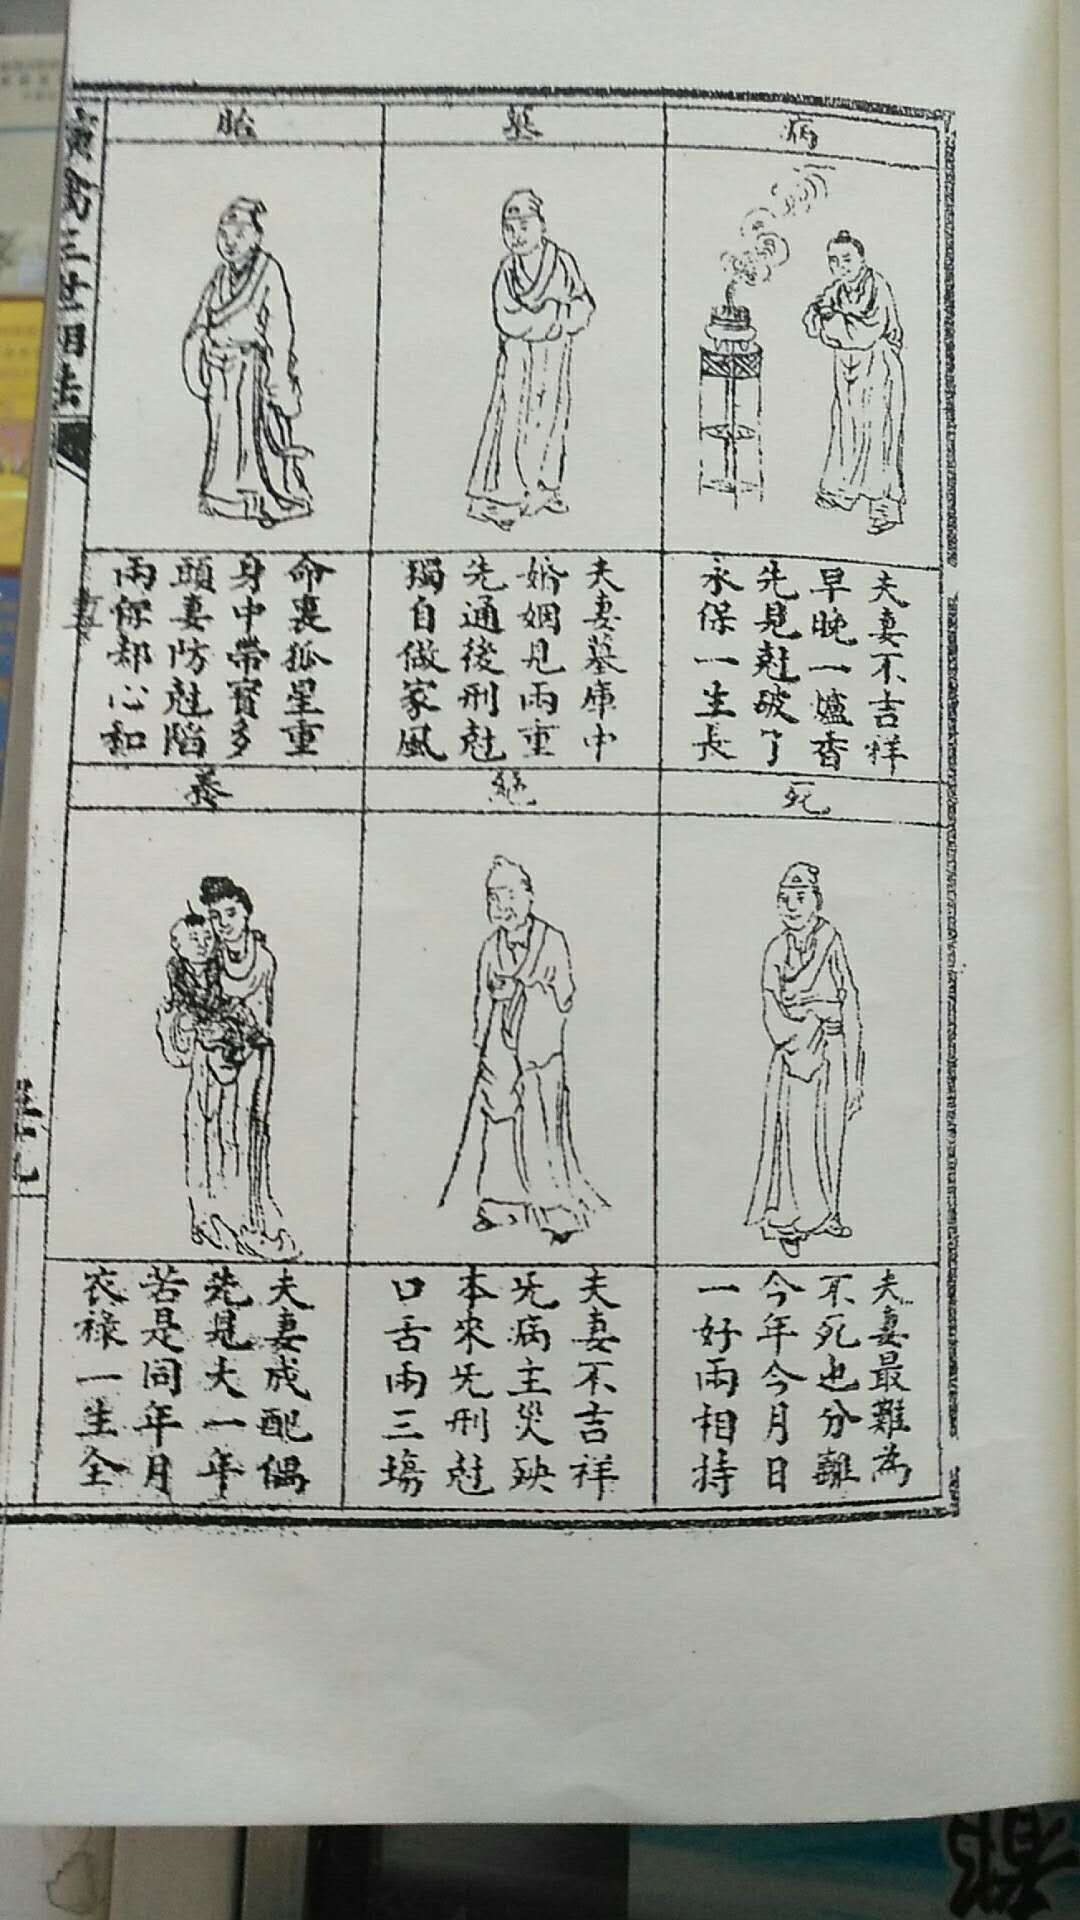 病
夫妻不吉祥
早晚一爐香
先見尅破了
永保一生長
墓
夫妻墓庫中
婚姻見兩重
先通後刑尅
獨自做家風
胎
命裏孤星重
身中帶寳多
頭妻防尅陷
兩保却心和
死
夫妻最難為
不死也分離
今年今月日
一好兩相持
絕
夫妻不吉祥
旡病主災殃
本來旡刑尅
口舌兩三塲
養
夫妻成配偶
先見大一年
若是同年月
衣祿一生全
三世相法